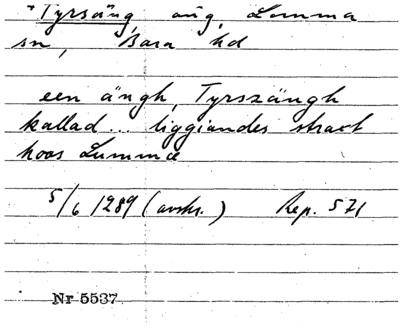 *Tyrsäng, äng, Lomma
sn, Bara hd
een ängh, Tyrszängh
kallad... liggiandes straxt
hoos Lumme
5/6 1289 (avskr.) Rep. 571
Nr 5537